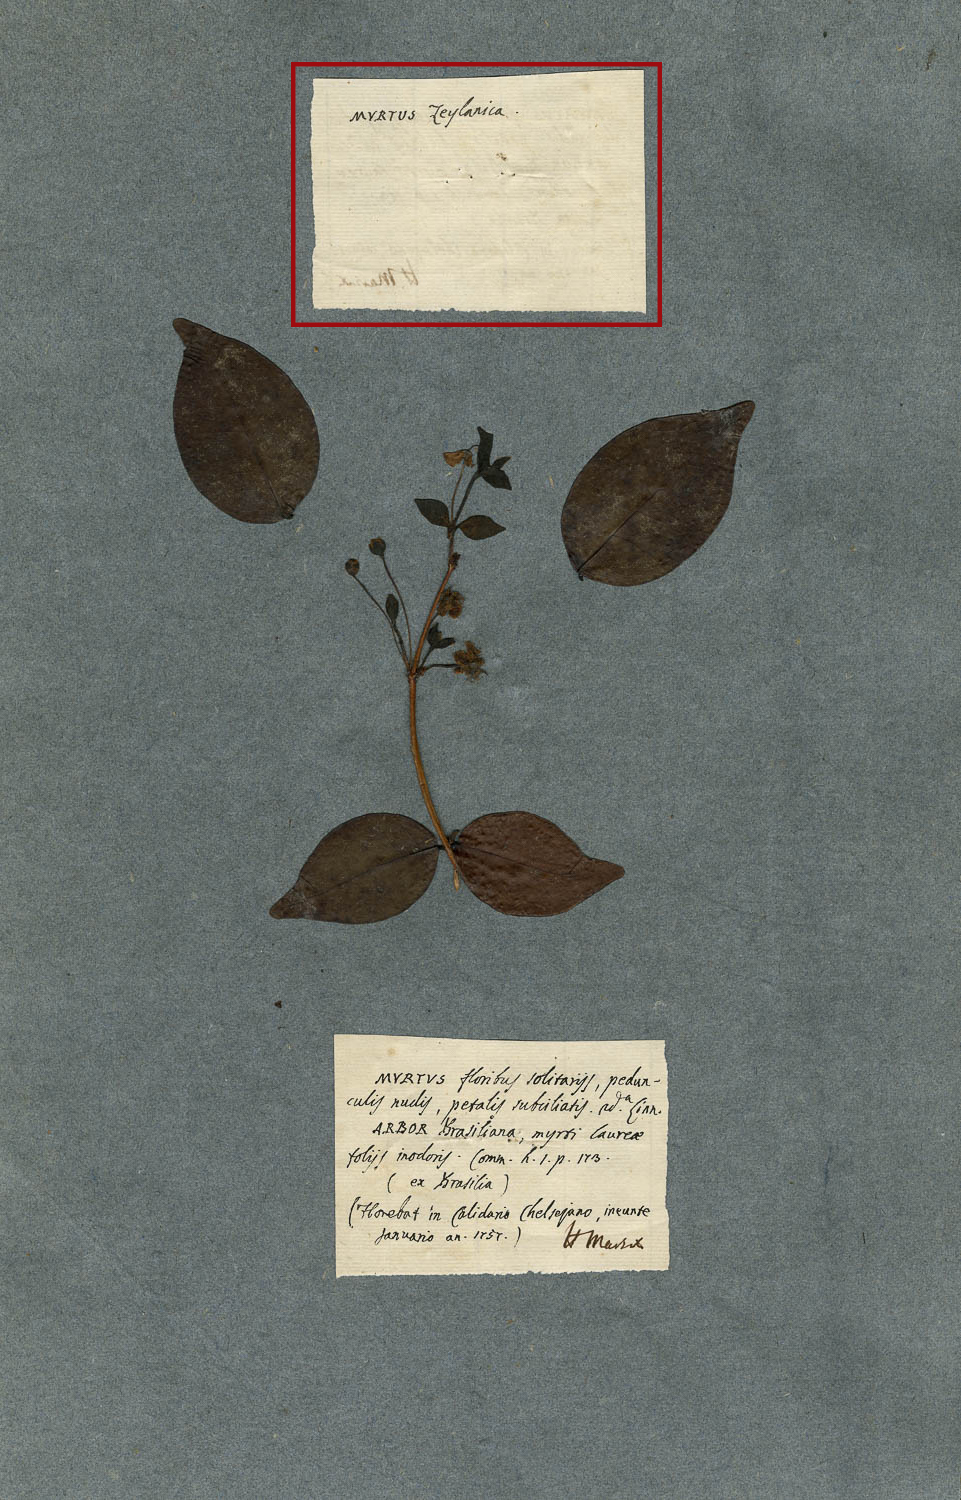 MYRTUS Zeylanica.
MYRTVS floribus solitarijs, pedun-
culis nudis, petalis subciliatis. ad.a Linn.
ARBOR Brasiliana, myrti laureæ
folijs inodoris. Comm. h. 1. p. 173.
( ex Brasilia )
(Florebat in Calidario Chelsejano, ineunte
Januario an. 1757. )